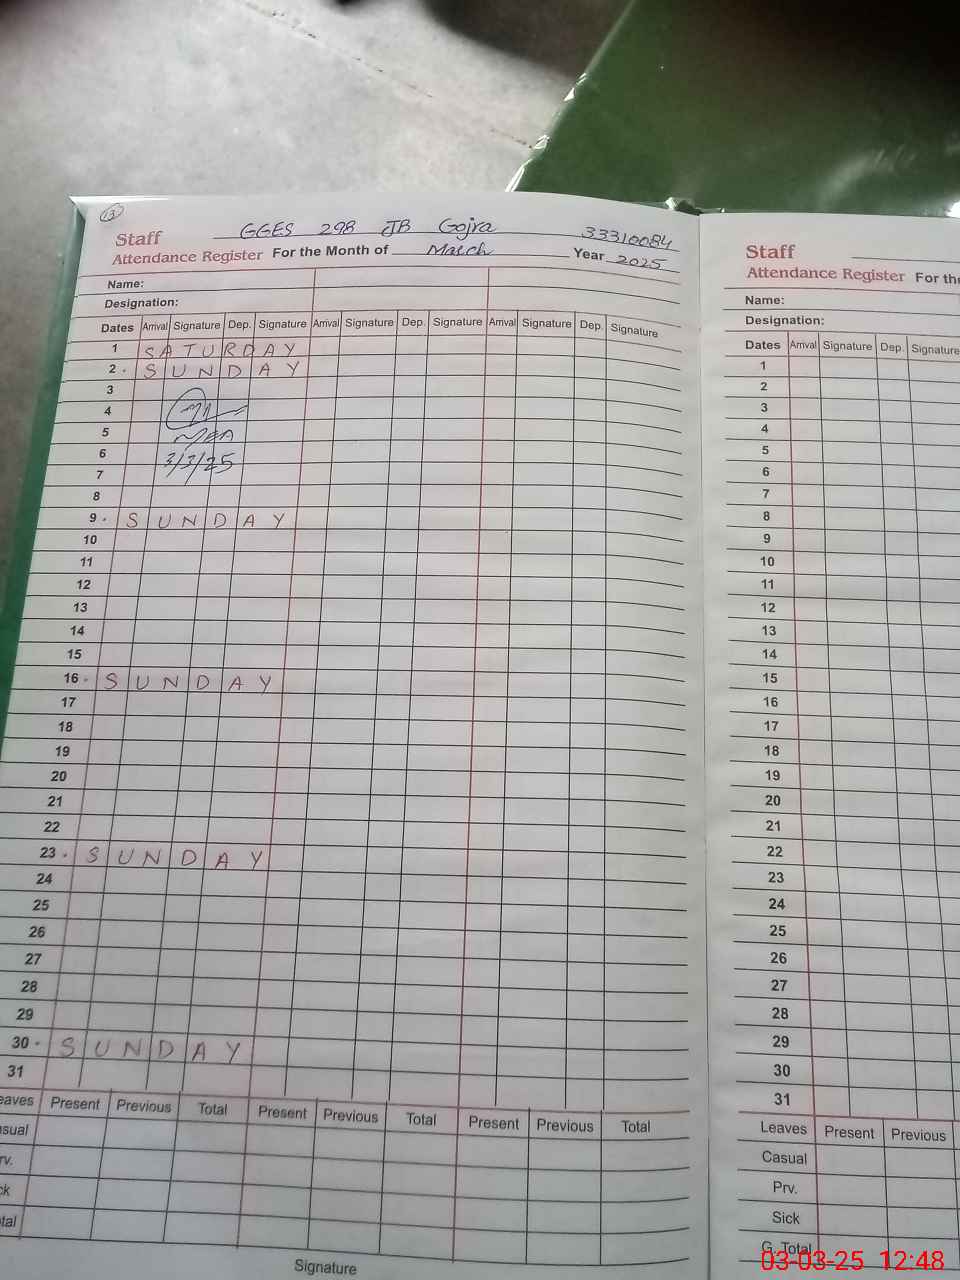 13
GGES 298 JB Gojra 33310084
Staff
Attendance Register For the Month of March Year 2025
Name:
Designation:
Dates Arrival Signature Dep. Signature Arrival Signature Dep. Signature Arrival Signature Dep. Signature
1 SATURDAY
2 SUNDAY
3
4
5 MEA
6 3/3/25
7
8
9 SUNDAY
10
11
12
13
14
15
16 SUNDAY
17
18
19
20
21
22
23 SUNDAY
24
25
26
27
28
29
30 SUNDAY
31
eaves Present Previous Total Present Previous Total Present Previous Total
sual
rv.
ck
tal
Signature
Staff
Attendance Register For the
Name:
Designation:
Dates Arrival Signature Dep. Signature
1
2
3
4
5
6
7
8
9
10
11
12
13
14
15
16
17
18
19
20
21
22
23
24
25
26
27
28
29
30
31
Leaves Present Previous
Casual
Prv.
Sick
G. Total
03-03-25 12:48